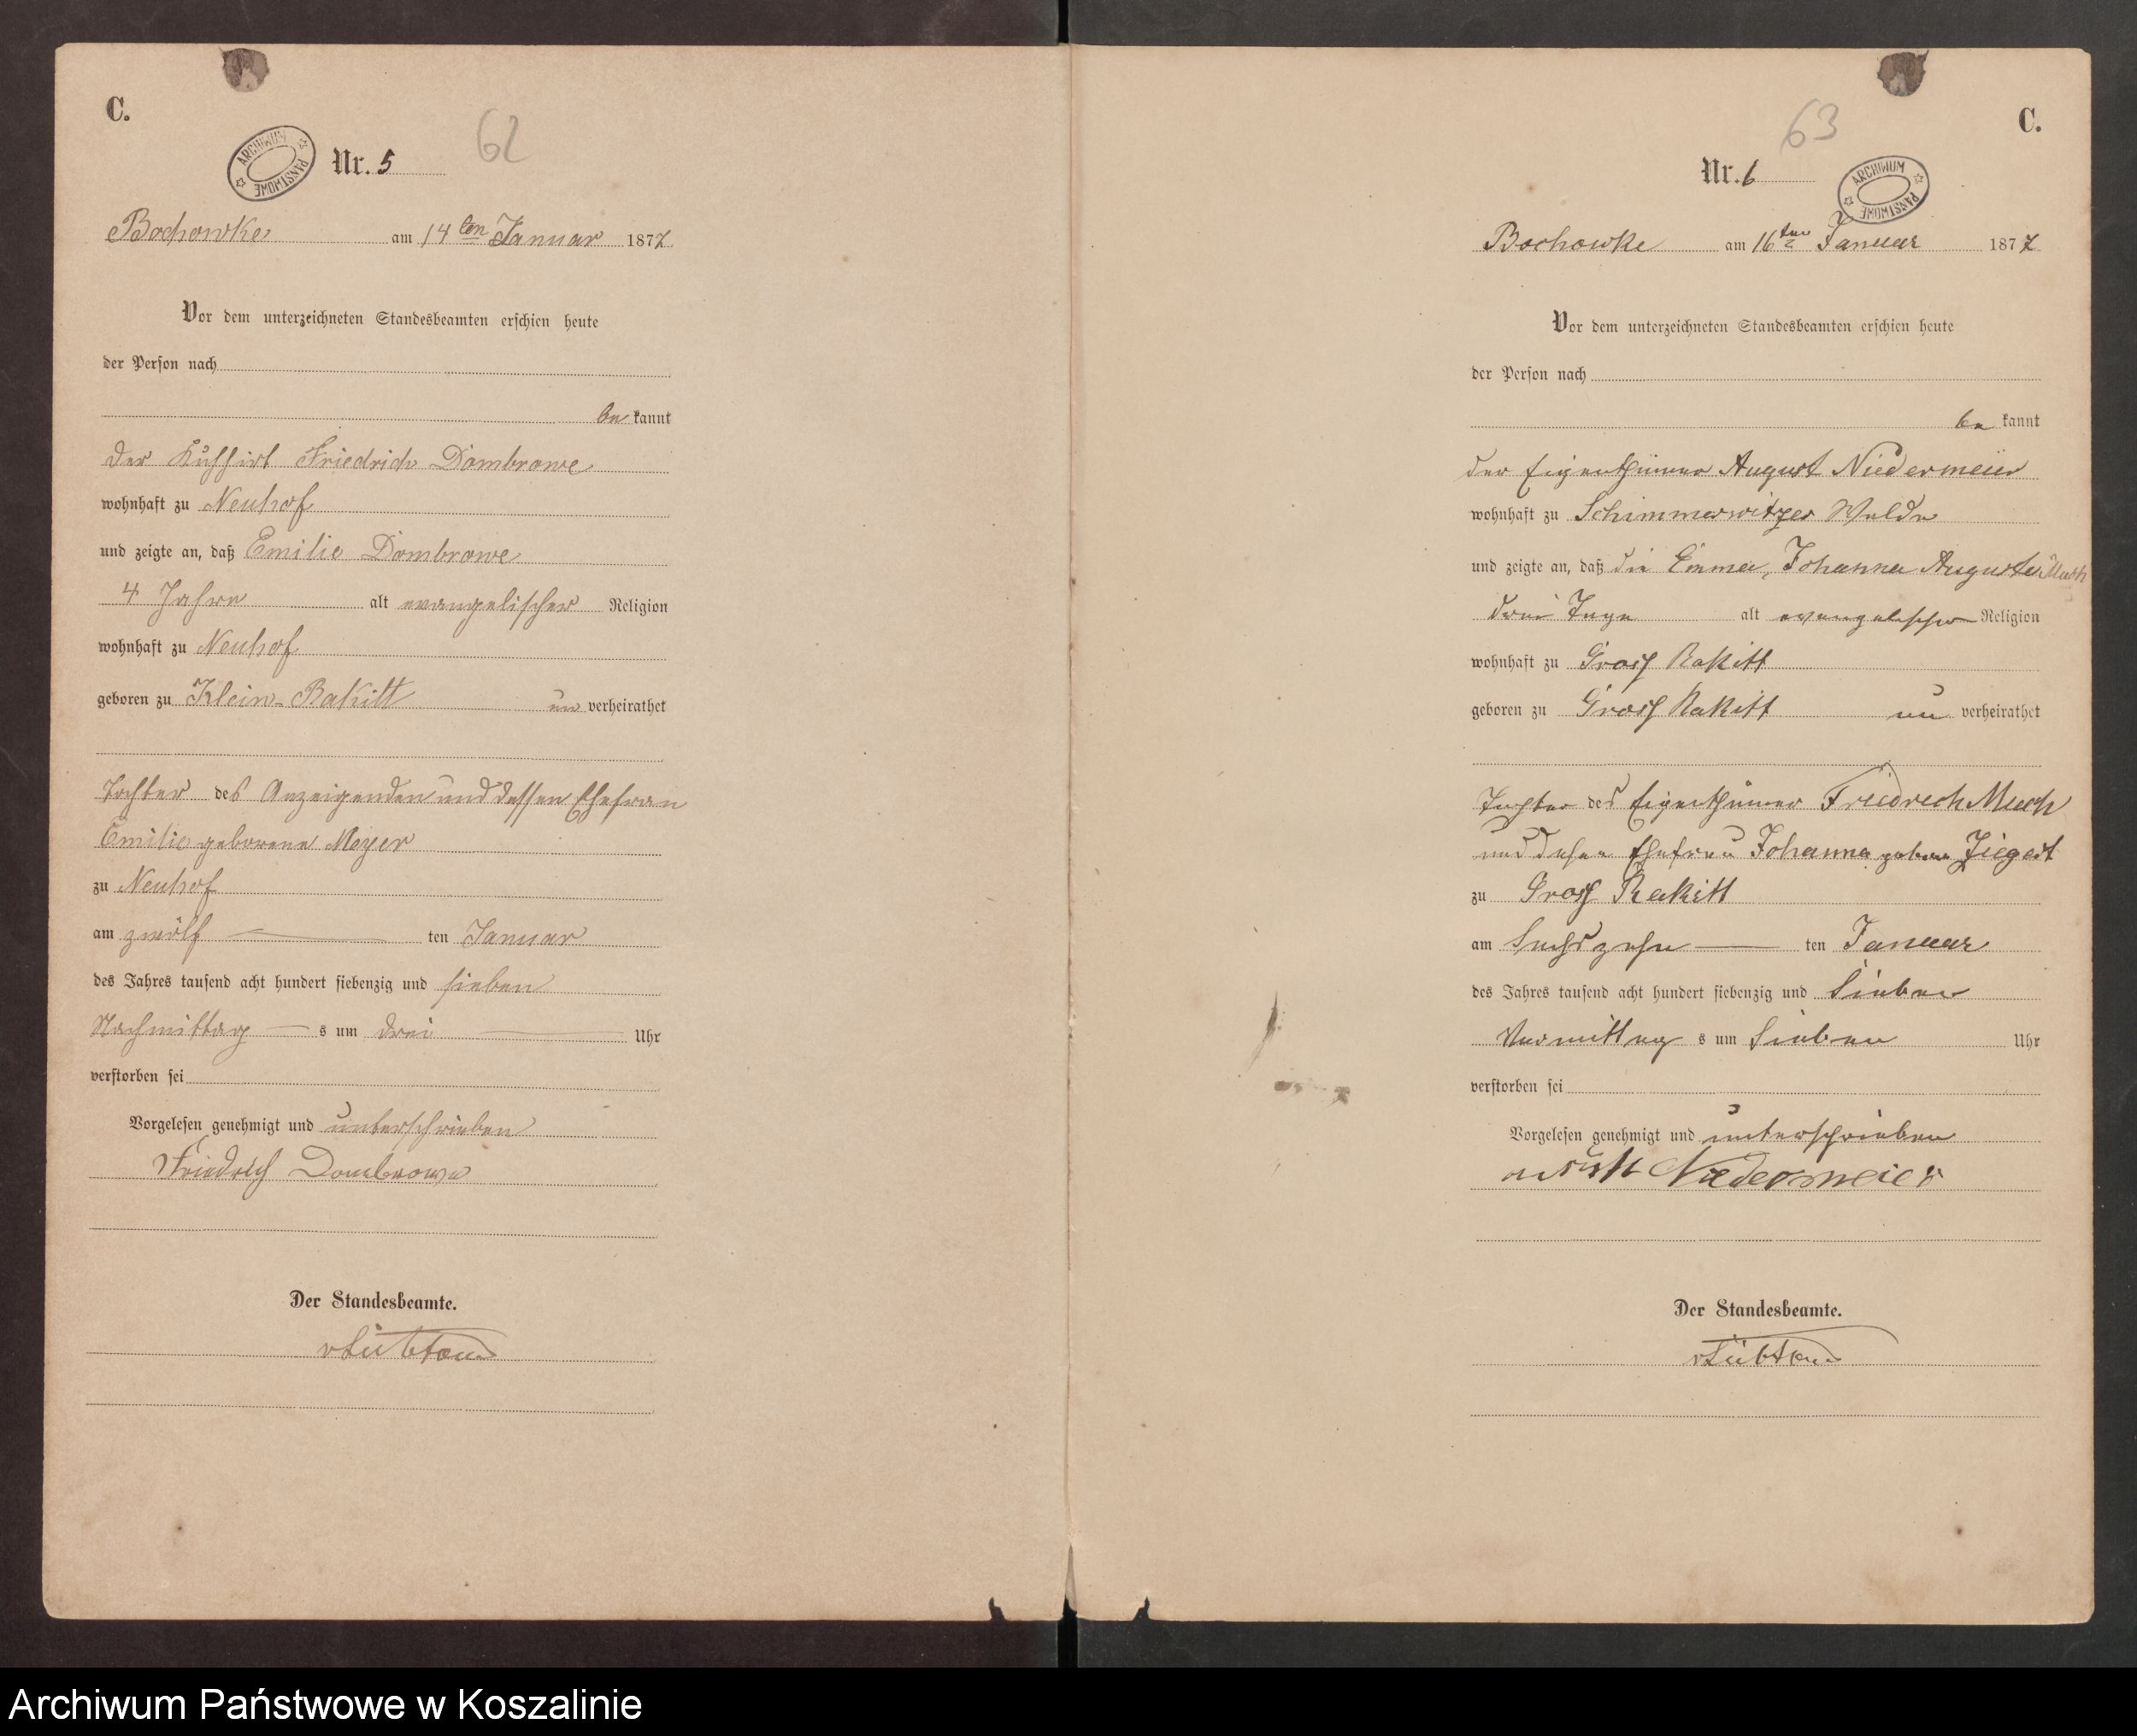 C.
62
ARCHIWUM PAŃSTWOWE
Nr. 5
Bochowke am 14ten Januar 1877
Vor dem unterzeichneten Standesbeamten erschien heute
der Person nach
be kannt
der Kuhhirt Friedrich Dombrowe
wohnhaft zu Neuhof
und zeigte an, daß Emilie Dombrowe
4 Jahre alt evangelischer Religion
wohnhaft zu Neuhof
geboren zu Klein-Rakitt un verheirathet
Tochter des Anzeigenden und dessen Ehefrau
Emilie geborene Meyer
zu Neuhof
am zwölf ten Januar
des Jahres tausend acht hundert siebenzig und sieben
Nachmittag s um drei Uhr
verstorben sei
Vorgelesen genehmigt und unterschrieben
Friedrich Dombrowe
Der Standesbeamte.
C.
63
Nr. 6
ARCHIWUM PAŃSTWOWE
Bochowke am 16ten Januar 1877
Vor dem unterzeichneten Standesbeamten erschien heute
der Person nach
be kannt
der Eigenthümer August Niedermeier
wohnhaft zu Schimmerwitzer Walde
und zeigte an, daß die Emma, Johanna Auguste Much
drei Tage alt evangelischer Religion
wohnhaft zu Gross Rakitt
geboren zu Gross Rakitt un verheirathet
Tochter des Eigenthümer Friedrich Much
und dessen Ehefrau Johanna geborne Ziegert
zu Gross Rakitt
am Sechszehn ten Januar
des Jahres tausend acht hundert siebenzig und Sieben
Vormittag s um Sieben Uhr
verstorben sei
Vorgelesen genehmigt und unterschrieben
Niedermeier
Der Standesbeamte.
Archiwum Państwowe w Koszalinie